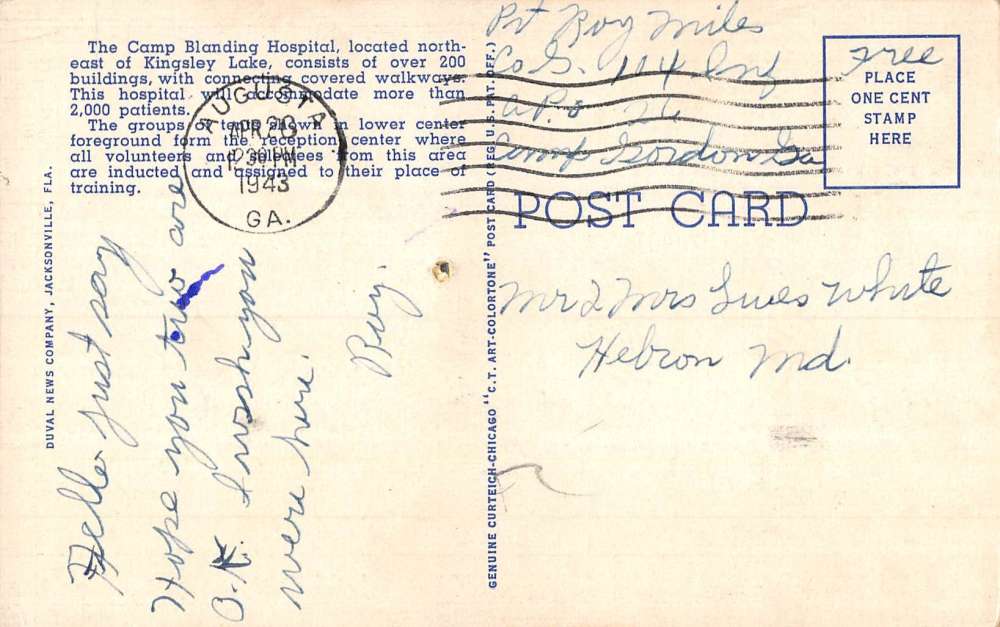 The Camp Blanding Hospital, located north-
east of Kingsley Lake, consists of over 200
buildings, with connecting covered walkways.
This hospital will accommodate more than
2,000 patients.
The groups of tents shown in lower center
foreground form the reception center where
all volunteers and selectees from this area
are inducted and assigned to their place of
training.
AUGUSTA
APR 20
12 30 PM
1943
GA.
DUVAL NEWS COMPANY, JACKSONVILLE, FLA.
Hello just say
Hope you two are
O.K. I wish you
were here.
Roy.
GENUINE CURTEICH-CHICAGO "C.T. ART-COLORTONE" POST CARD (REG. U.S. PAT. OFF.)
Pvt Roy Miles
Co G. 114 Inf
A.P.O 26
Camp Gordon Ga
Free
PLACE
ONE CENT
STAMP
HERE
POST CARD
Mr & Mrs White
Hebron Md.